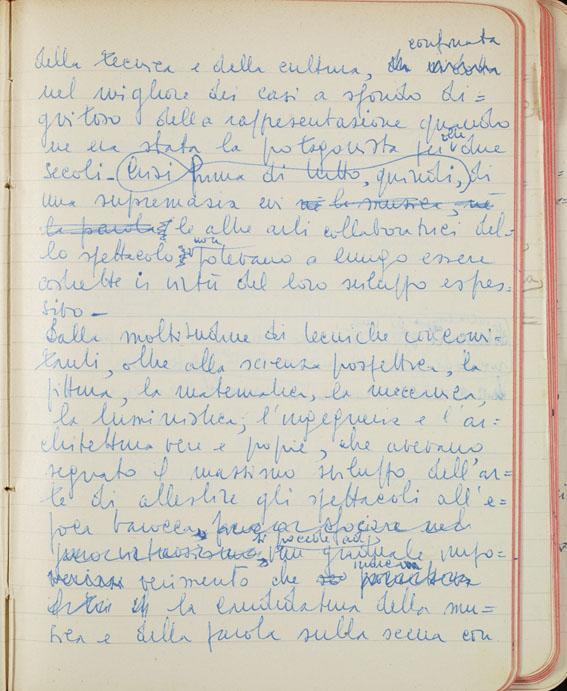 confinata
della tecnica e della cultura,
nel migliore dei casi a sfondo di=
gnitoso della rappresentazione quando
ne era stata la protagonista per oltre due
secoli - Crisi prima di tutto, quindi, di
una supremazia cui né la musica, né
la parola le altre arti collaboratrici del=
lo spettacolo non potevano a lungo essere
costrette in virtù del loro sviluppo espres=
sivo -
Dalla moltitudine di tecniche concomi=
tanti, oltre alla scienza prospettica, la
pittura, la matematica, la meccanica,
la luministica, l'ingegneria e l'ar=
chitettura vere e proprie, che avevano
segnato il massimo sviluppo dell'ar=
te di allestire gli spettacoli all'e=
poca barocca,
si procede ad
un graduale impo=
verimento che
insieme
la candidatura della mu=
sica e della parola sulla scena con